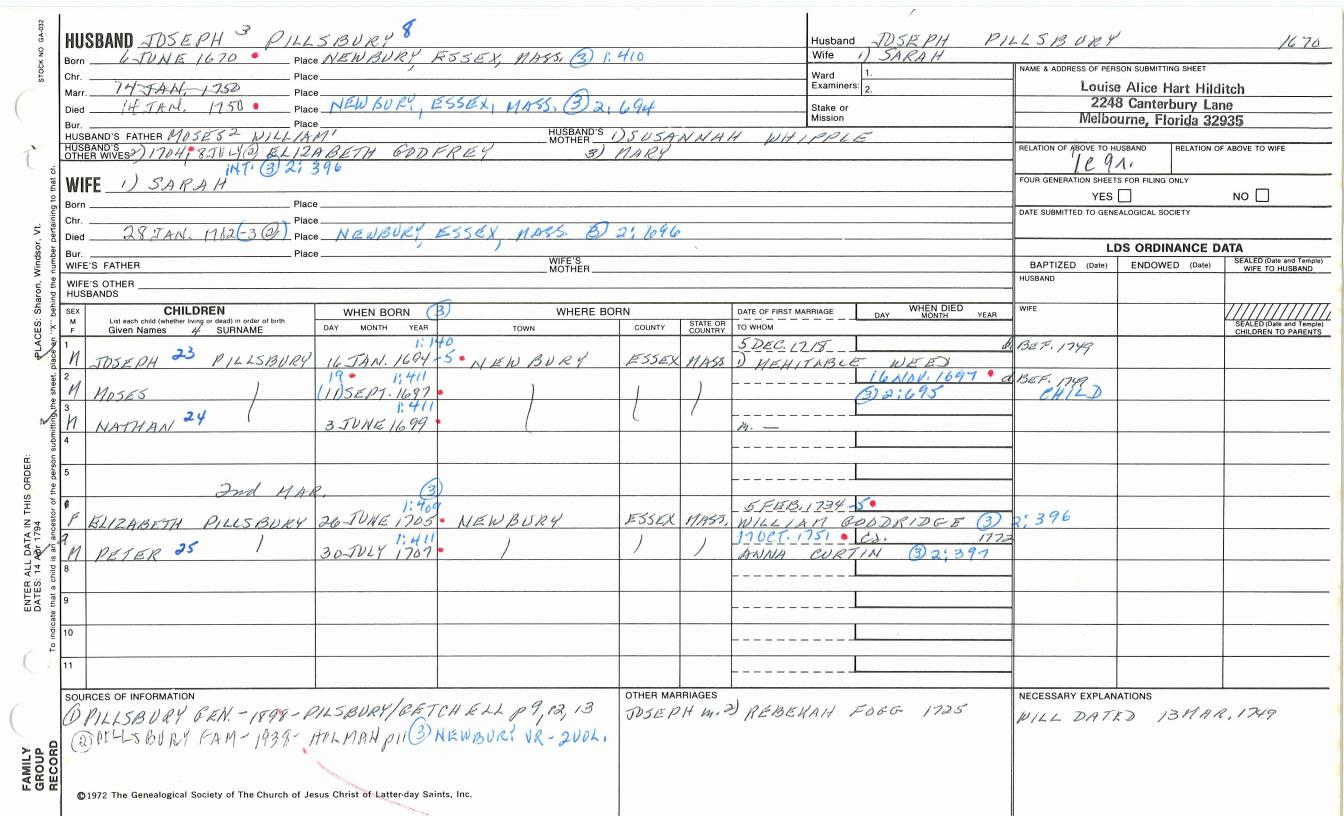 STOCK NO. GA-032
PLACES: Sharon, Windsor, Vt.
ENTER ALL DATA IN THIS ORDER:
DATES: 14 Apr 1794
To indicate that a child is an ancestor of the person submitting the sheet, place an "X" behind the number pertaining to that ch.
FAMILY GROUP RECORD
HUSBAND JOSEPH 3 PILLSBURY 8
Born 6 JUNE 1670 Place NEWBURY, ESSEX, MASS. (3) 1:410
Chr. Place
Marr. 14 JAN. 1750 Place
Died 14 JAN. 1750 Place NEWBURY, ESSEX, MASS. (3) 2:694
Bur. Place
HUSBAND'S FATHER MOSES 2 WILLIAM 1 HUSBAND'S MOTHER 1) SUSANNAH WHIPPLE
HUSBAND'S OTHER WIVES 2) 1704; 8 JULY (2) ELIZABETH GODFREY 3) MARY
INT: (3) 2:396
WIFE 1) SARAH
Born Place
Chr. Place
Died 28 JAN. 1702(-3 (2)) Place NEWBURY, ESSEX, MASS. (3) 2:696
Bur. Place
WIFE'S FATHER WIFE'S MOTHER
WIFE'S OTHER HUSBANDS
Husband JOSEPH PILLSBURY 1670
Wife 1) SARAH
Ward Examiners: 1. 2.
Stake or Mission
NAME & ADDRESS OF PERSON SUBMITTING SHEET
Louise Alice Hart Hilditch
2248 Canterbury Lane
Melbourne, Florida 32935
RELATION OF ABOVE TO HUSBAND RELATION OF ABOVE TO WIFE
FOUR GENERATION SHEETS FOR FILING ONLY
YES NO
DATE SUBMITTED TO GENEALOGICAL SOCIETY
LDS ORDINANCE DATA
BAPTIZED (Date) ENDOWED (Date) SEALED (Date and Temple) WIFE TO HUSBAND
HUSBAND
WIFE
SEALED (Date and Temple) CHILDREN TO PARENTS
SEX M F
CHILDREN
List each child (whether living or dead) in order of birth
Given Names SURNAME
WHEN BORN (3)
DAY MONTH YEAR
WHERE BORN
TOWN COUNTY STATE OR COUNTRY
DATE OF FIRST MARRIAGE
TO WHOM
WHEN DIED
DAY MONTH YEAR
1 1:140 5 DEC. 1715 BEF. 1749
M JOSEPH 23 PILLSBURY 16 JAN. 1694-5 NEWBURY ESSEX MASS 1) MEHITABLE WEED
2 19 1:411 16 NOV. 1697 d BEF. 1749
M MOSES (11) SEPT. 1697 (3) 2:695 CHILD
3 1:411
M NATHAN 24 3 JUNE 1699 m. —
4
5
2nd MAR. (3)
6 1:409 5 FEB. 1734-5
F ELIZABETH PILLSBURY 26 JUNE 1705 NEWBURY ESSEX MASS. WILLIAM GOODRIDGE (3) 2:396
1:411 17 OCT. 1751 CA. 1772
M PETER 25 30 JULY 1707 ANNA CURTIN (3) 2:397
8
9
10
11
SOURCES OF INFORMATION
(1) PILLSBURY GEN. - 1898 - PILSBURY/GETCHELL p 9, 12, 13
(2) PILLSBURY FAM - 1938 - HOLMAN p 11 (3) NEWBURY VR - 2 VOL.
OTHER MARRIAGES
JOSEPH m. 2) REBEKAH FOGG 1725
NECESSARY EXPLANATIONS
WILL DATED 13 MAR. 1749
©1972 The Genealogical Society of The Church of Jesus Christ of Latter-day Saints, Inc.